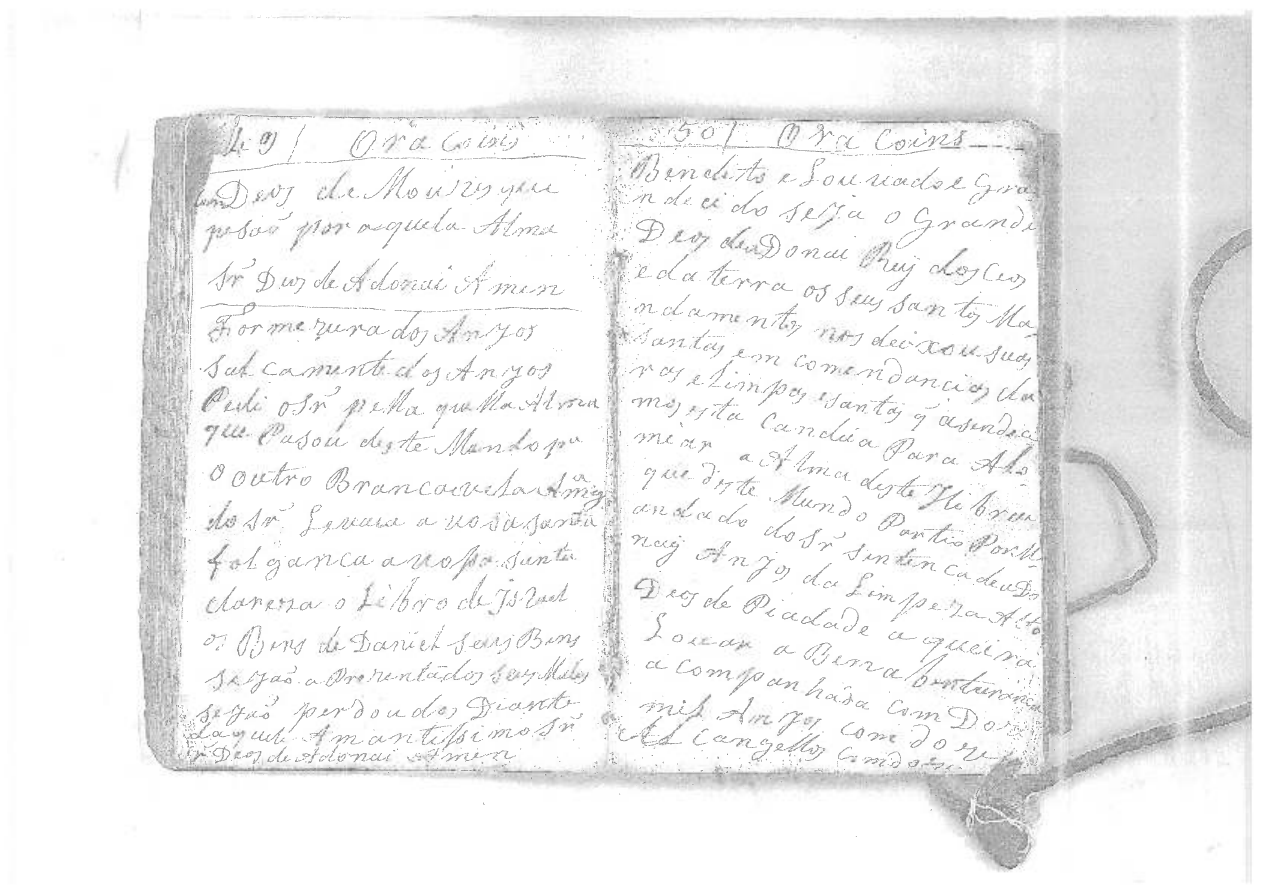 49 | Ora Coins
Deos de Mouzes que
pesaõ por aquela Alma
Sr. Deos de Adonai Amen
Formezura dos Anjos
dos Anjos
Pedi o Sr. pella quella Alma
que Pasou deste Mundo pa
O outro
do Sr. Levaia a vosa santa
folganca a vosa santa
clareza o Libro de Israel
os Bens de Daniel seus Bens
sejaõ aprezentados seus Males
sejaõ perdoudos Diante
daquele Amantissimo Sr.
Sr. Deos de Adonai Amen
50 | Ora Coins
Bendito e Louvado e Gra
ndecido seja o Grande
Deos de aDonai Rey dos Ceos
e da terra os seus santos Ma
ndamentos nos deixou suas
santas em comendancias cla
ras e limpas e santas q asende
mos esta Candia Para Alo
miar a Alma deste Hibreu
que diste Mundo Partio Por M
andado do Sr. sentenca de aDo
nay Anjos da Limpeza Alto
Deos de Piadade a queira
Louar a Bema benturanca
a companhada com Doze
mil Anjos com doze
Al Cangellos com doze